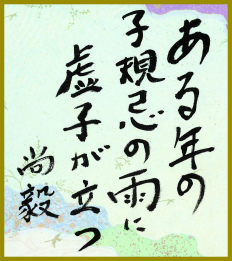 ある年の
子規忌の雨に
虚子が立つ
尚毅